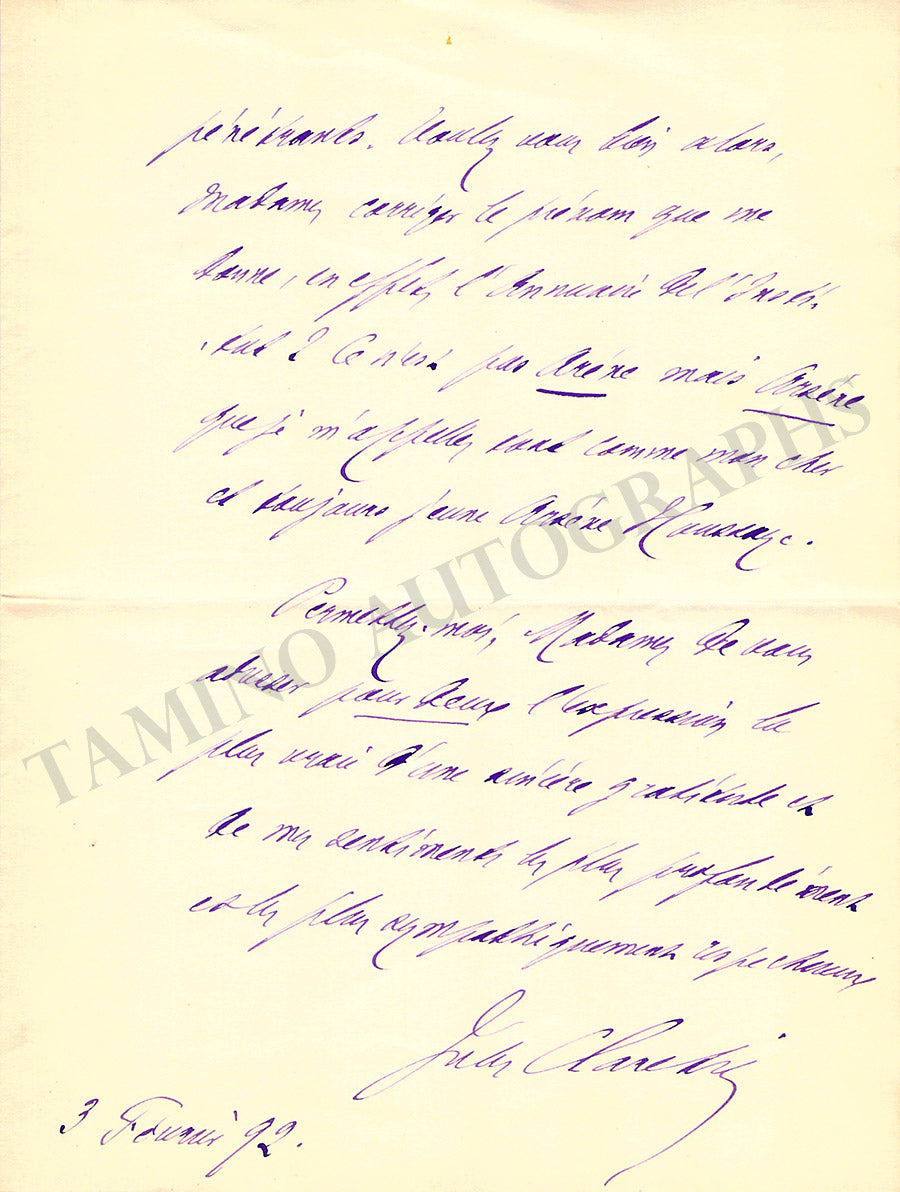 pénétrants. Voulez vous bien, alors,
Madame, corriger le prénom que me
donne, en effet, l'Annuaire de l'Insti-
tut ? Ce n'est pas Arène mais Arsène
que je m'appelle, tout comme mon cher
et toujours jeune Arsène Houssaye.
Permettez-moi, Madame, de vous
adresser pour deux l'expression la
plus vraie d'une sincère gratitude et
de mes sentiments les plus profondément
et les plus sympathiquement respectueux
Jules Claretie
3 Février 92.
TAMINO AUTOGRAPHS